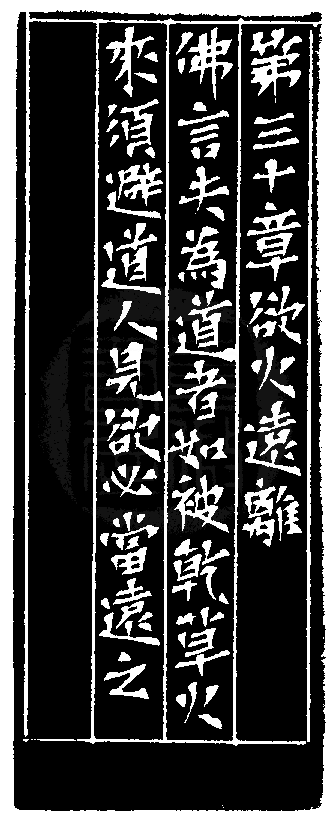 第三十章欲火遠離
佛言夫為道者如被乾草火
來須避道人見欲必當遠之